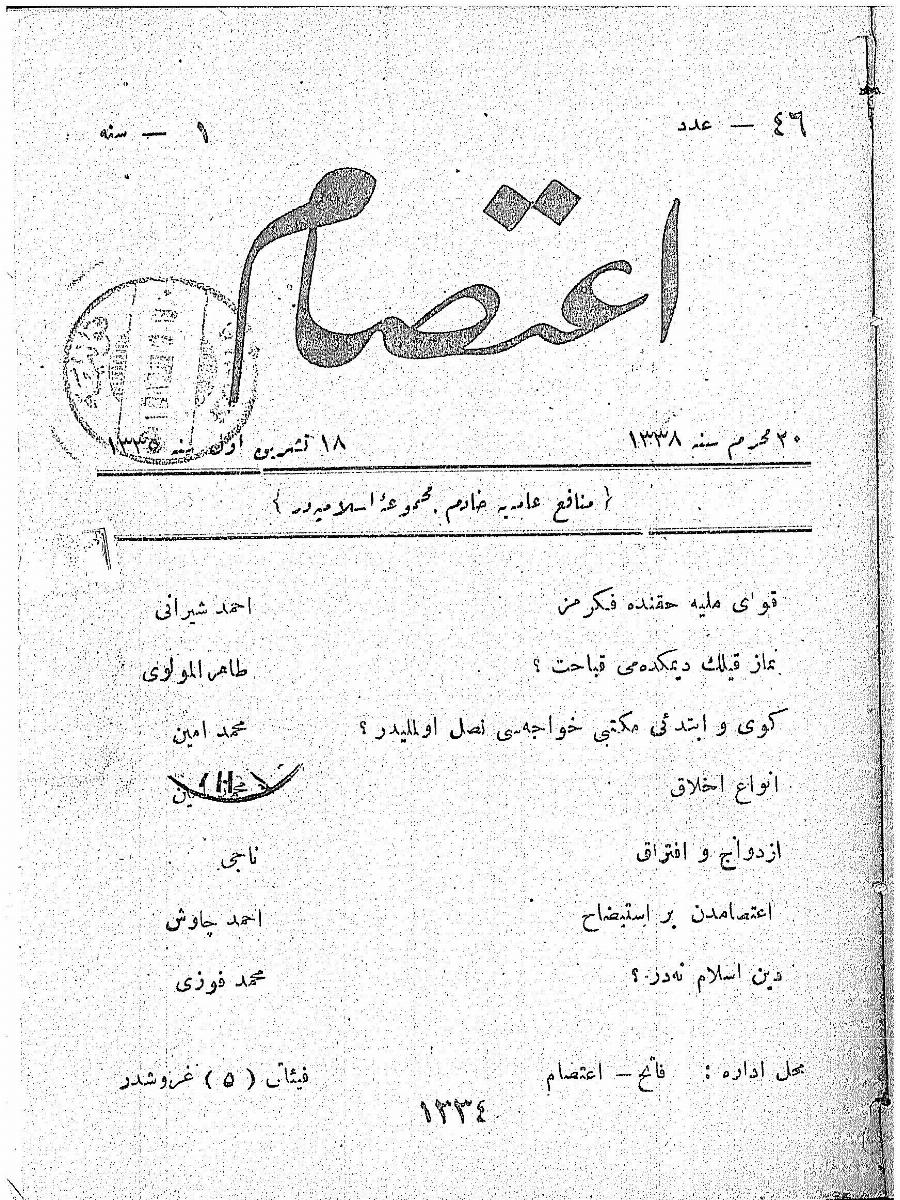 ٤٦ — عدد
١ — سنه
اعتصام
٢٠ محرم سنه ١٣٣٨
١٨ تشرين اول سنه ١٣٣٥
{ منافع عامه‌يه خادم مجموعۀ اسلاميه‌در }
قوای مليه حقنده فكرمز احمد شيرانی
نماز قيلك ديمكده‌می قباحت ؟ طاهر المولوی
كوی و ابتدائی مكتبی خواجه‌سی نصل اولمليدر ؟ محمد امين
انواع اخلاق
ازدواج و افتراق ناجی
اعتصامدن بر استيضاح احمد چاوش
دين اسلام نه‌در ؟ محمد فوزی
محل اداره : فاتح — اعتصام
فيئاتی ( ٥ ) غروشدر
١٣٣٤